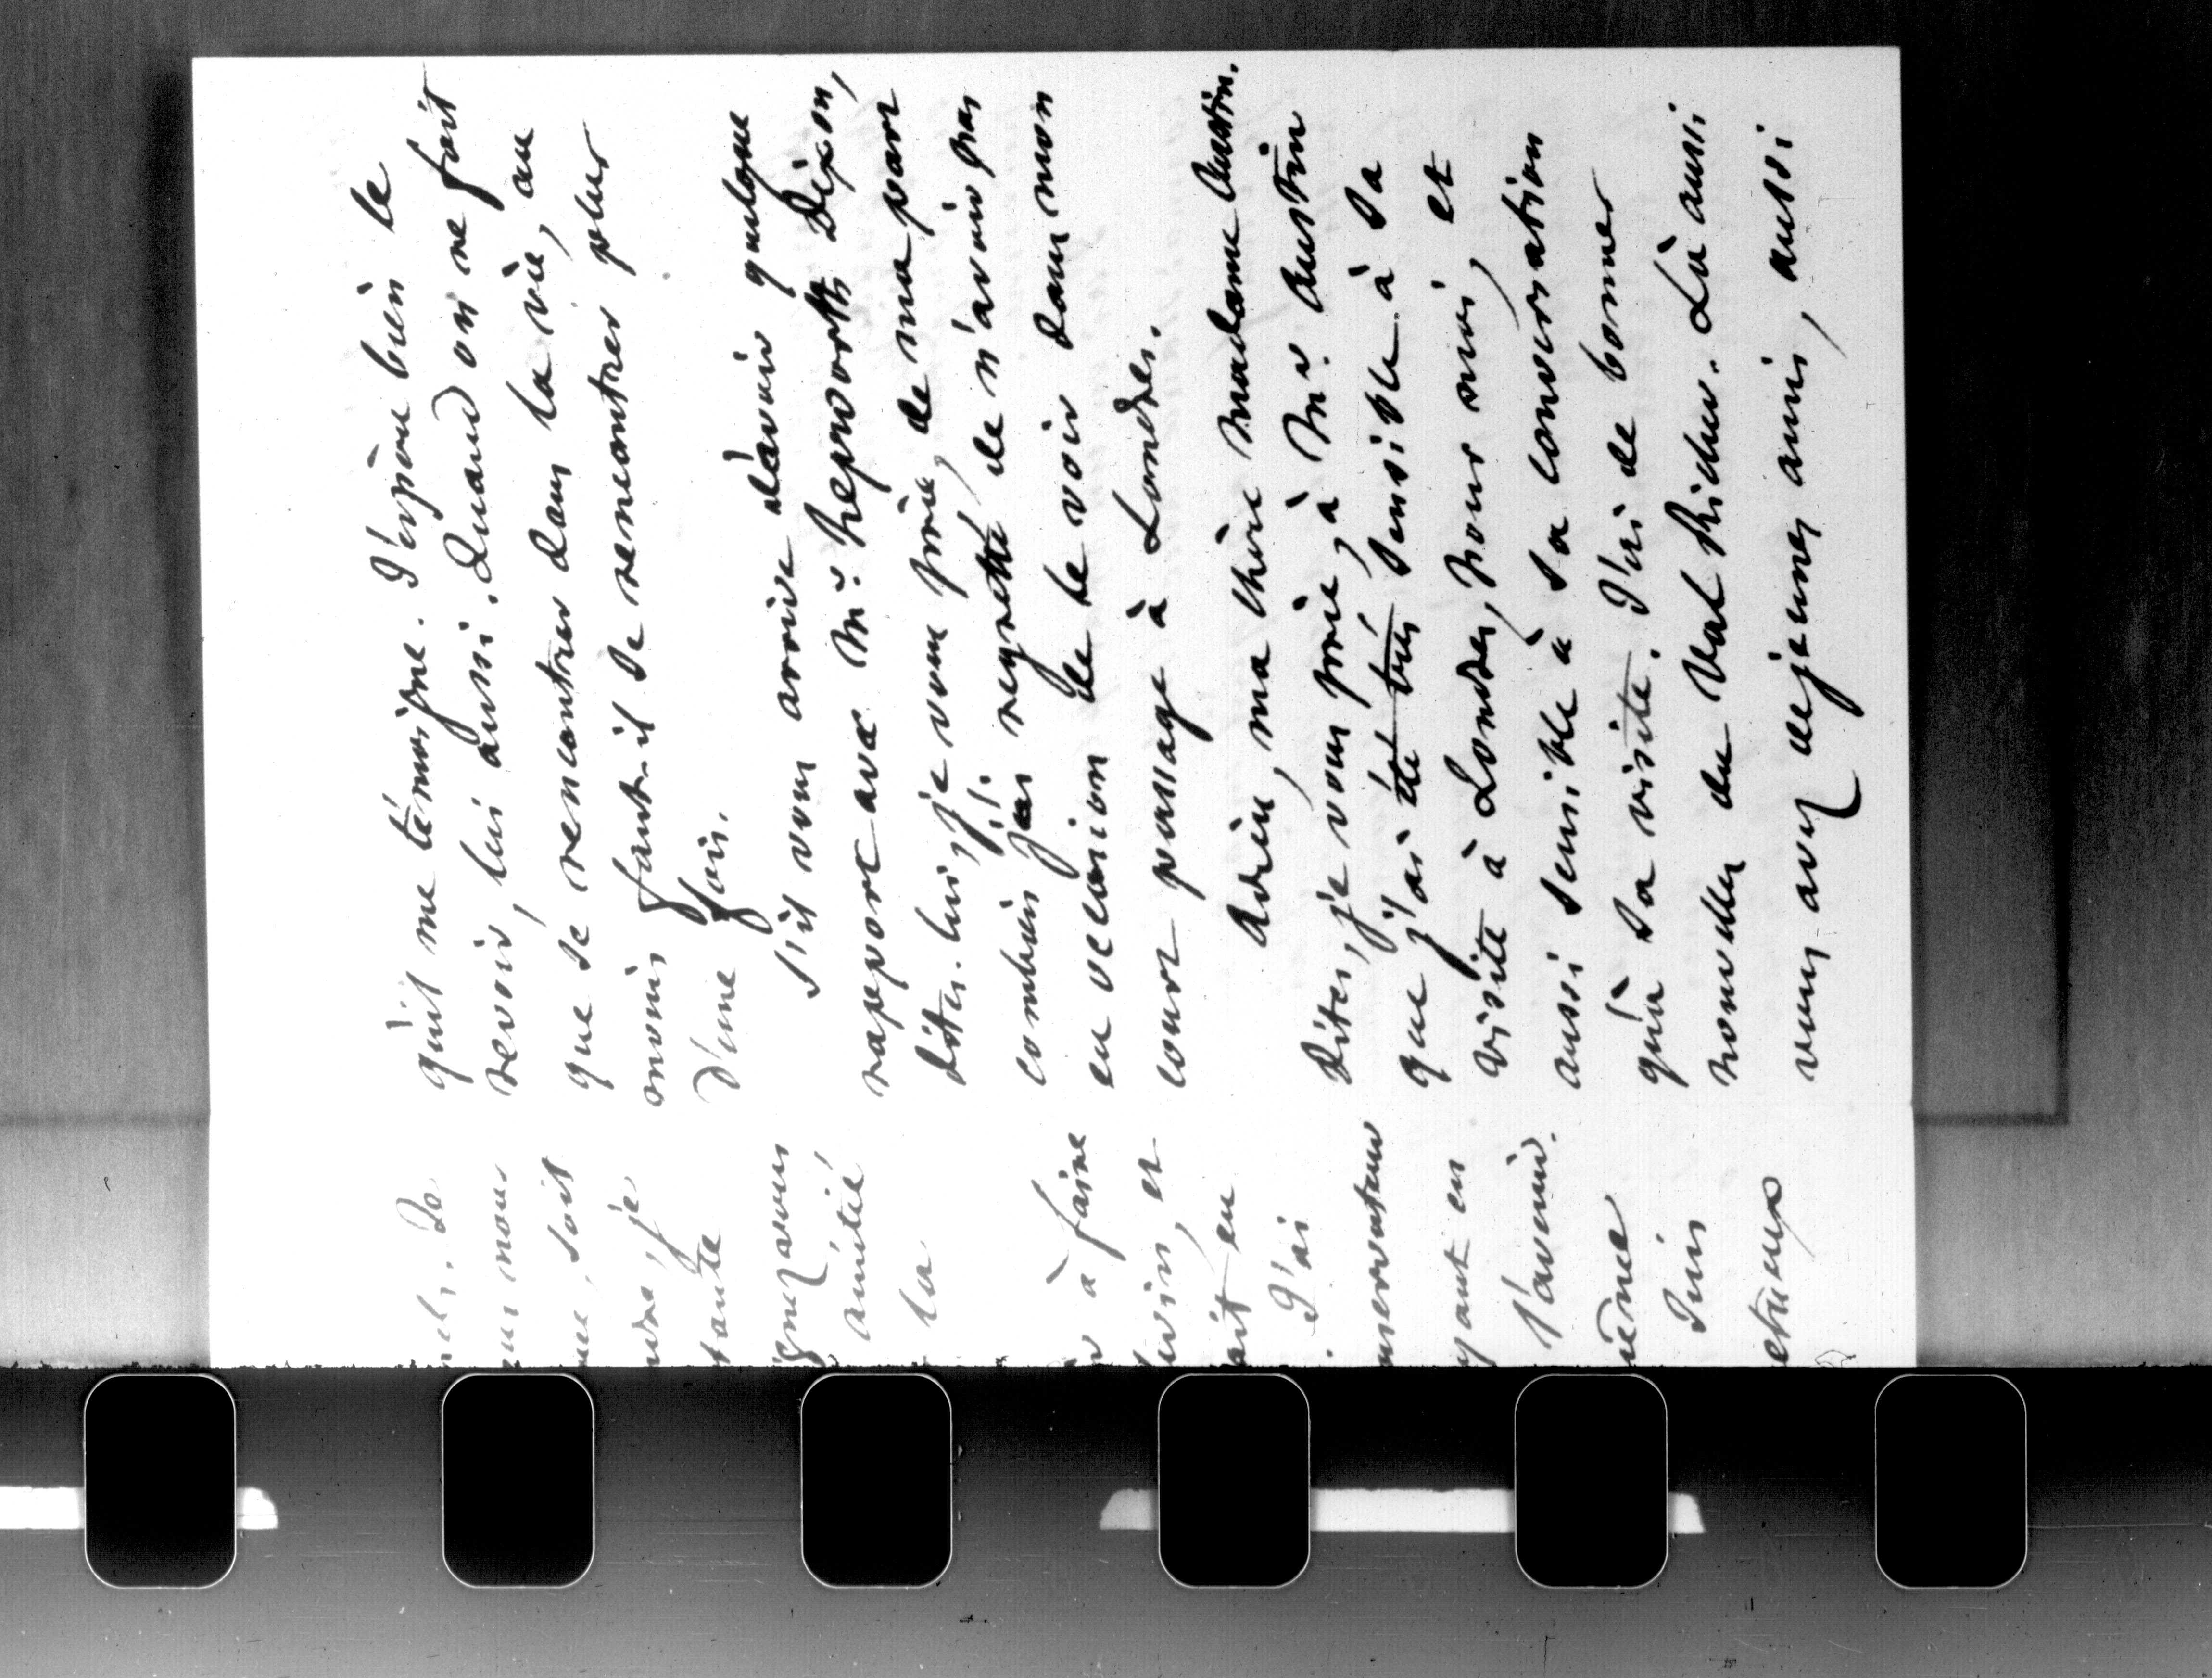 nels. De
us nous
ue, soit
ndre, je
tante
ignez avoir
amitié
la
à faire
et
ait en
. J'ai
onservateur
yant en
l'avenir.
ième
Juin
qu'il me témoigne. J'espère bien le
revoir, lui aussi. Quand on ne fait
que se rencontrer dans la vie, au
moins faut-il se rencontrer plus
d'une fois.
S'il vous arrive d'avoir quelque
rapport avec Mr. Hepworth Dixon,
dites-lui, je vous prie, de ma part
combien j'ai regretté de n'avoir pas
eu occasion de le voir dans mon
court passage à Londres.
Adieu, ma chère Madame Austin.
Dites, je vous prie, à Mr. Austin
que j'ai été très sensible à sa
visite à Londres, pour moi, et
aussi sensible à sa conversation
qu'à sa visite. J'ai de bonnes
nouvelles du Val Richer. Là aussi
vous avez de jeunes amis, aussi